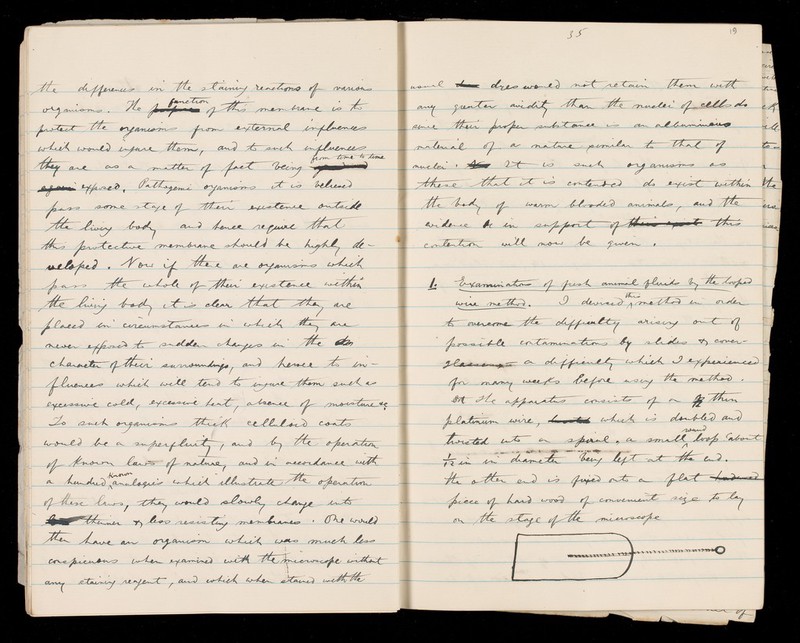 the differences in the staining reactions of various
organisms. The purpose function of this membrane is to
protect the organisms from external influences
which would injure them, and to such influences
they are as a matter of fact being from time to time
again exposed. Pathogenic organisms it is believed
pass some stage of their existence outside
the living body and hence require that
this protective membrane should be highly de-
veloped. Now if there are organisms which
pass the whole of their existence within
the living body it is clear that they are
placed in circumstances in which they are
never exposed to sudden changes in the
character of their surroundings, and hence to in-
fluences which will tend to injure them such as
excessive cold, excessive heat, absence of moisture &c
To such organisms thick cellulose coats
would be a superfluity, and by the operation
of known laws of nature, and in accordance with
a hundred known analogies which illustrate the operation
of these laws, they would slowly change into
thinner & less resisting membranes. One would
then have an organism which was much less
conspicuous when examined with the microscope without
any staining reagent, and which when stained with the
35
19
usual dyes would not retain them with
any greater avidity than the nuclei of cells do
since their proper substance is an albuminous
material of a nature similar to that of
nuclei. It is such organisms as
these that it is contended do exist within
the body of warm blooded animals, and the
evidence in support of this
contention will now be given.
1. Examination of fresh animal fluids by the looped
wire method. I devised this method in order
to overcome the difficulty arising out of
possible contaminations by slides & cover-
glasses - a difficulty which I experienced
for many weeks before using the method.
The apparatus consists of a thin
platinum wire, which is doubled and
twisted into a spiral. a small round loop about
1/12 in in diameter being left at the end.
The other end is fixed onto a flat
piece of hard wood of convenient size to lay
on the stage of the microscope